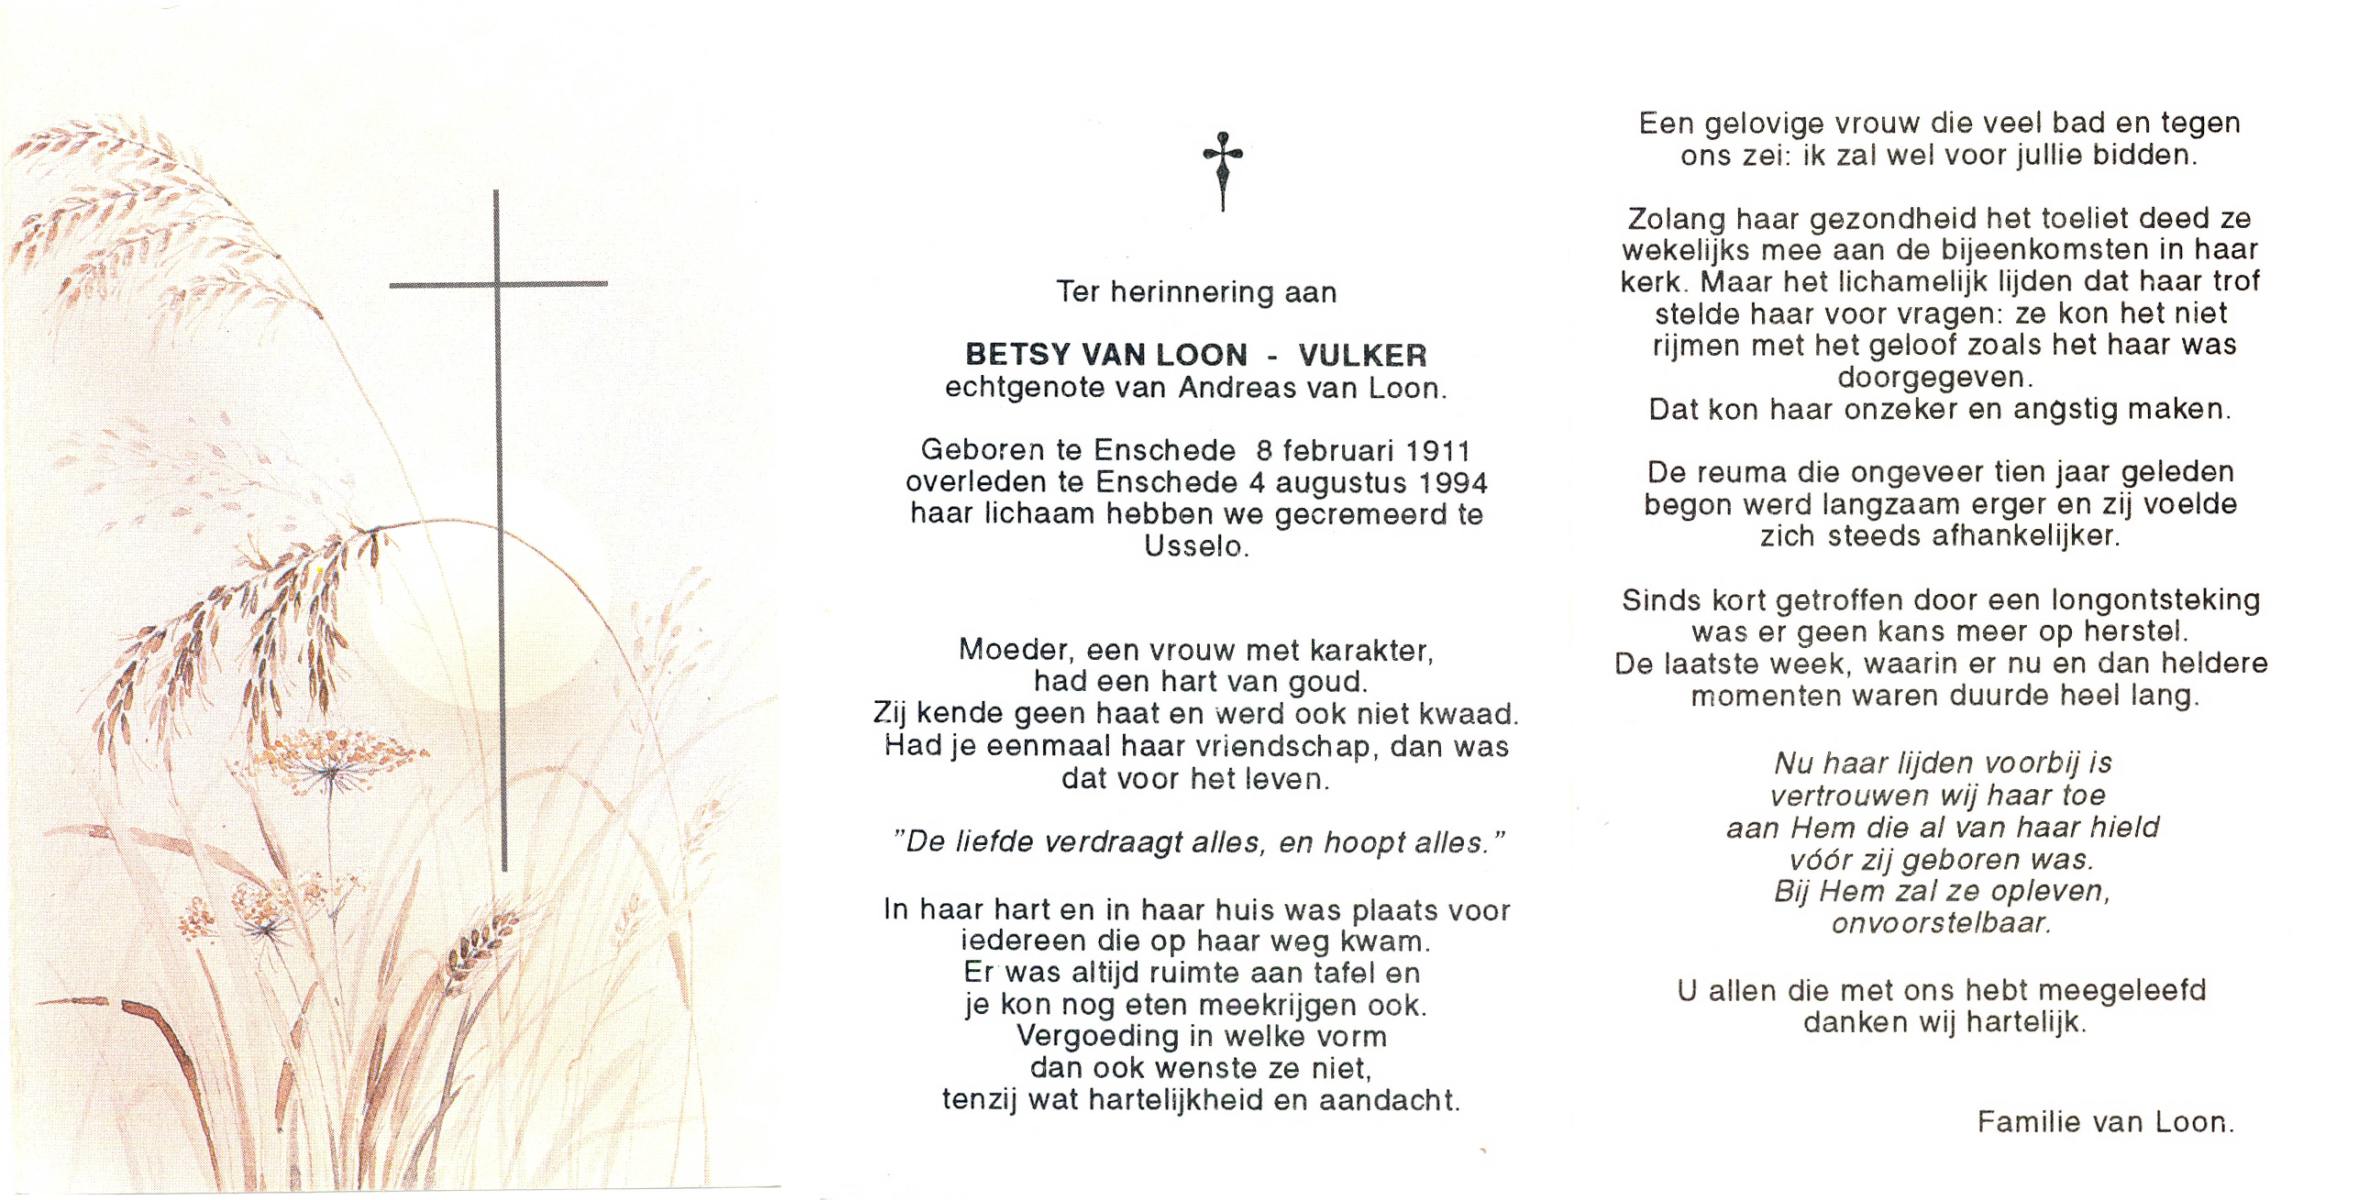 Ter herinnering aan
BETSY VAN LOON - VULKER
echtgenote van Andreas van Loon.
Geboren te Enschede 8 februari 1911
overleden te Enschede 4 augustus 1994
haar lichaam hebben we gecremeerd te
Usselo.
Moeder, een vrouw met karakter,
had een hart van goud.
Zij kende geen haat en werd ook niet kwaad.
Had je eenmaal haar vriendschap, dan was
dat voor het leven.
"De liefde verdraagt alles, en hoopt alles."
In haar hart en in haar huis was plaats voor
iedereen die op haar weg kwam.
Er was altijd ruimte aan tafel en
je kon nog eten meekrijgen ook.
Vergoeding in welke vorm
dan ook wenste ze niet,
tenzij wat hartelijkheid en aandacht.
Een gelovige vrouw die veel bad en tegen
ons zei: ik zal wel voor jullie bidden.
Zolang haar gezondheid het toeliet deed ze
wekelijks mee aan de bijeenkomsten in haar
kerk. Maar het lichamelijk lijden dat haar trof
stelde haar voor vragen: ze kon het niet
rijmen met het geloof zoals het haar was
doorgegeven.
Dat kon haar onzeker en angstig maken.
De reuma die ongeveer tien jaar geleden
begon werd langzaam erger en zij voelde
zich steeds afhankelijker.
Sinds kort getroffen door een longontsteking
was er geen kans meer op herstel.
De laatste week, waarin er nu en dan heldere
momenten waren duurde heel lang.
Nu haar lijden voorbij is
vertrouwen wij haar toe
aan Hem die al van haar hield
vóór zij geboren was.
Bij Hem zal ze opleven,
onvoorstelbaar.
U allen die met ons hebt meegeleefd
danken wij hartelijk.
Familie van Loon.